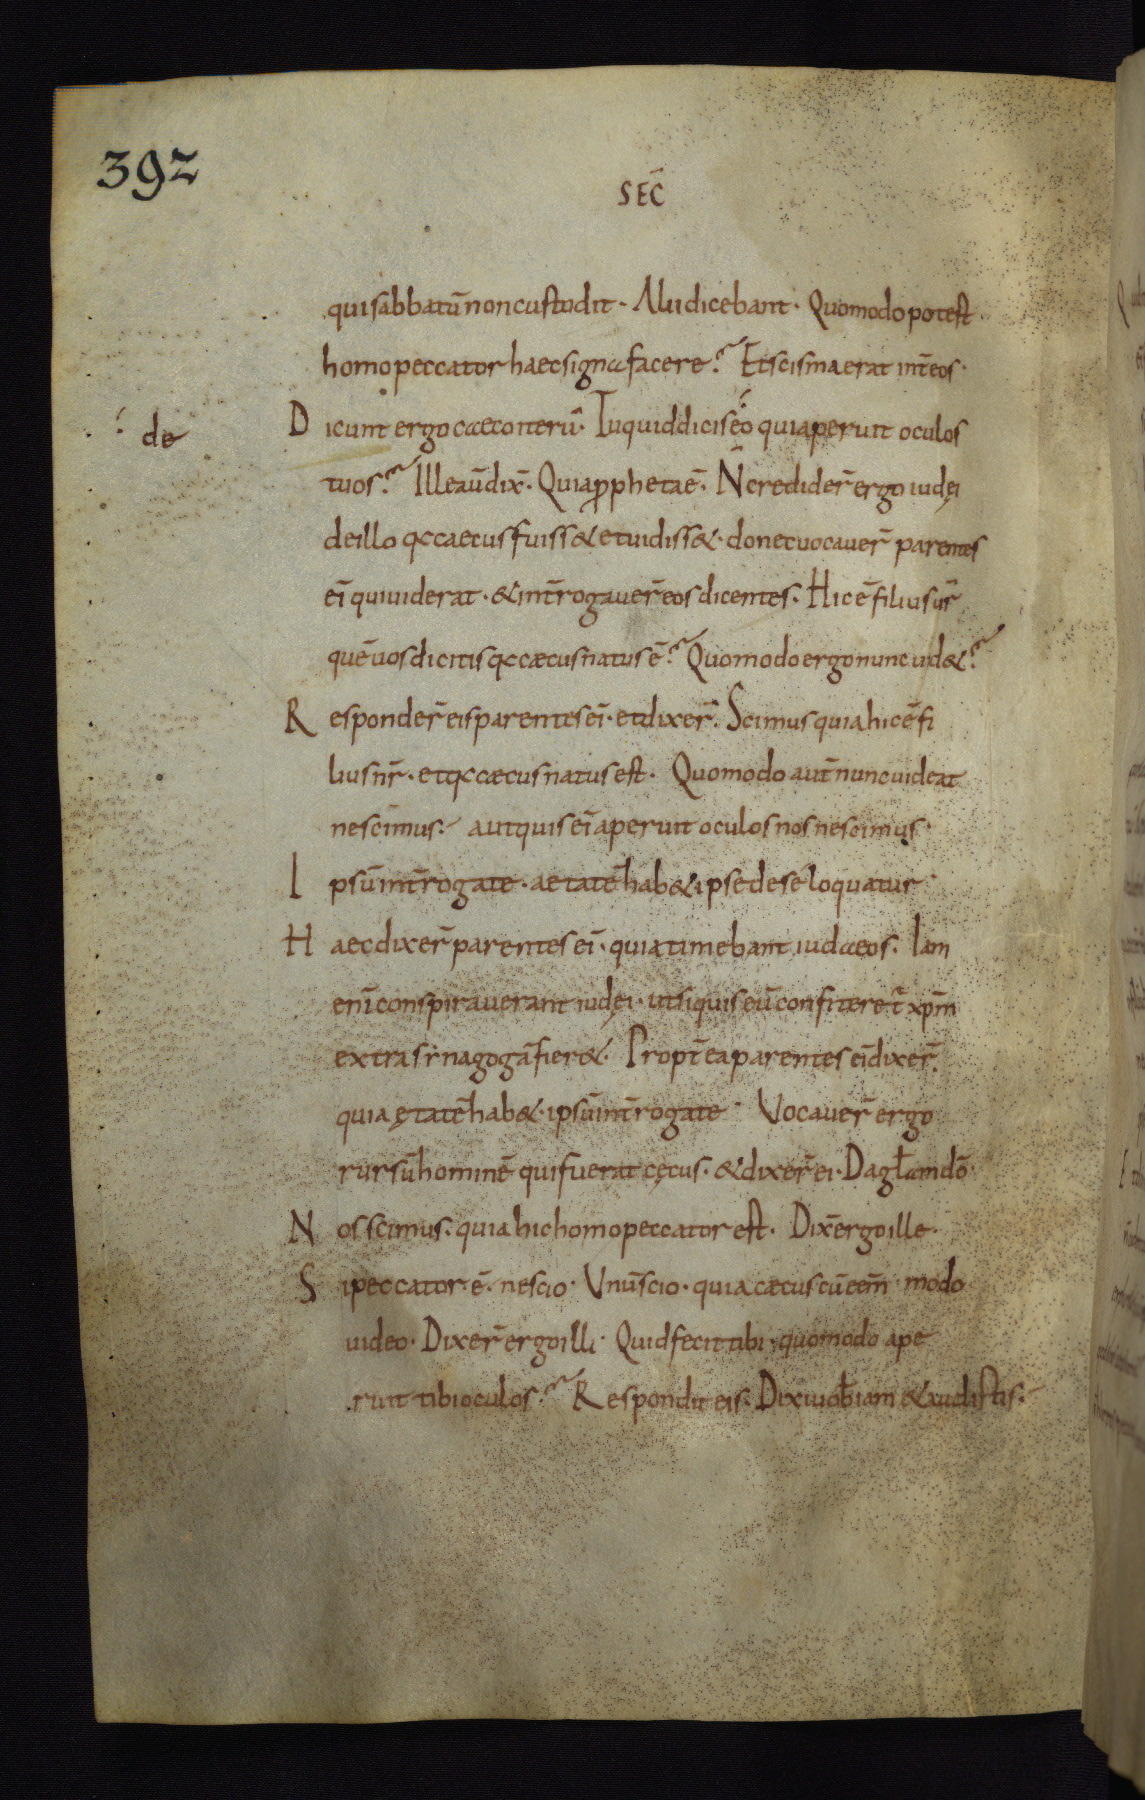 392
SEC̄
qui sabbatū non custodit · Alii dicebant · Quomodo potest
homo peccator haec signa facere? Et scisma erat int̄ eos ·
de
Dicunt ergo caeco iterū · Tu quid dicis eo quia peruit oculos
tuos? Ille aūdix̄ · Quia ꝓpheta ē · N̄ credider̄ ergo iudęi
de illo qa caecus fuiss& et uidiss& · donec uocauer̄ parentes
eī qui uiderat · & int̄rogauer̄ eos dicentes · Hic ē filius ur̄
quē uos dicitis qa cæcus natus ē? Quomodo ergo nunc uid&?
Responder̄ eis parentes eī · et dixer̄ · Scimus quia hic ē fi
lius nr̄ · et qa cæcus natus est · Quomodo aut̄ nunc uideat
nescimus · aut quis eī aperuit oculos nos nescimus ·
Ipsū int̄rogate · aetatē hab& ipse de se loquatur ·
Haec dixer̄ parentes eī · quia timebant iudaeos · Iam
enī conspirauerant iudęi · ut si quis eū confiteret̄ xp̄m
extra sẏnagogā fier& · Propt̄ea parentes eī dixer̄ ·
quia ętatē hab& · ipsū int̄rogate · Vocauer̄ ergo
rursū hominē qui fuerat cęcus · & dixer̄ ei · Da gl̄am dō ·
Nos scimus · quia hic homo peccator est · Dix̄ ergo ille ·
Si peccator ē · nescio · Vnū scio · quia cæcus cū eēm̄ modo
uideo · Dixer̄ ergo illi · Quid fecit tibi · quomodo ape
ruit tibi oculos? Respondit eis · Dixi uob̄ iam & audistis ·